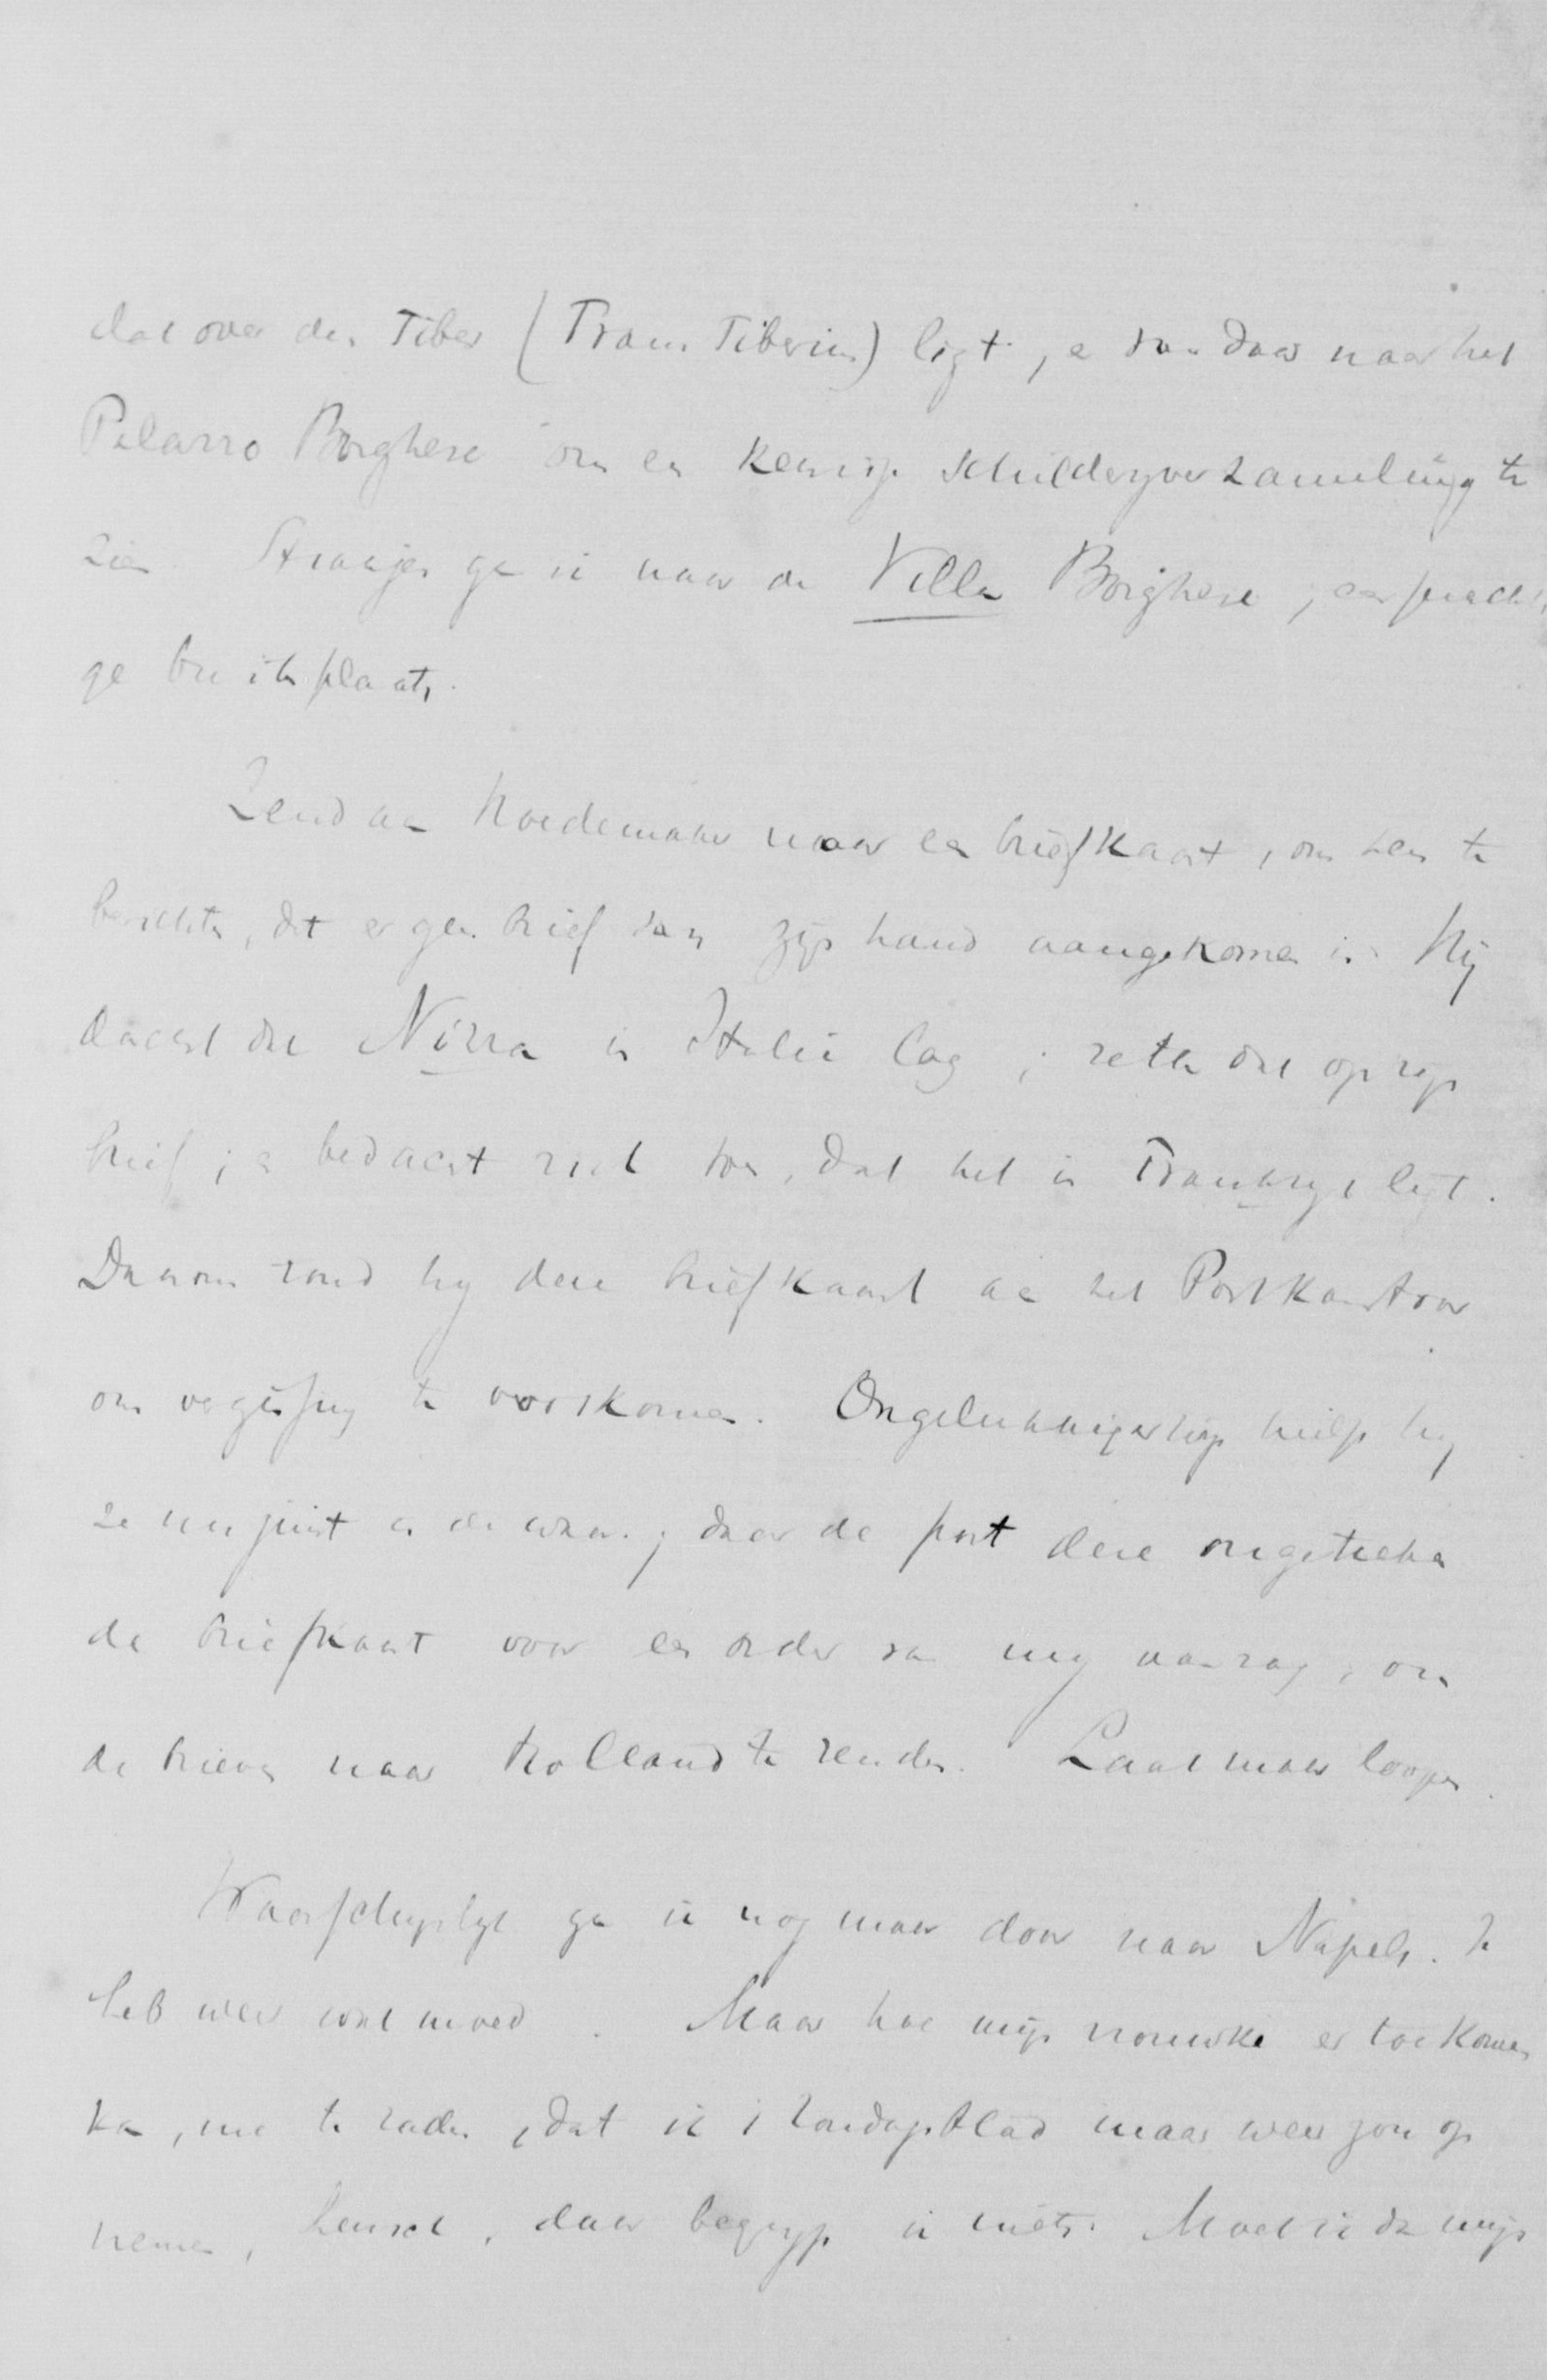 dat over den Tiber (Trans Tiberim) ligt, en van daar naar het
Palazzo Borghese om een keurige schilderyverzameling te
zien. Straajes ga ik naar de Villa Borghese, een prachti
ge buitenplaats.
Zend aan Hoedemaker maar een briefkaart, om hem te
berichten, dat er geen brief van zijn hand aangekomen is. Hij
dacht dat Nizza in Italië lag; zette dat op zijn
brief; en bedacht zich toen, dat het in Frankrijk ligt.
Daarom zond hy deze briefkaart aan het Postkantoor
om vergissing te voorkomen. Ongelukkigerwijs hielp hy
ze nu juist in de war; daar de post deze ongeteeken
de briefkaart voor een order van my aanzag, om
de brieven naar Holland te zenden. Laat maar loopen.
Waarschynlyk ga ik nog maar door naar Napels. Ik
heb weer wat moed. Maar hoe mijn vrouwke er toe komen
kan, me te raden, dat ik 't Zondagsblad maar weer zou op
nemen, heusch, daar begryp ik niets. Moet ik dan mijn